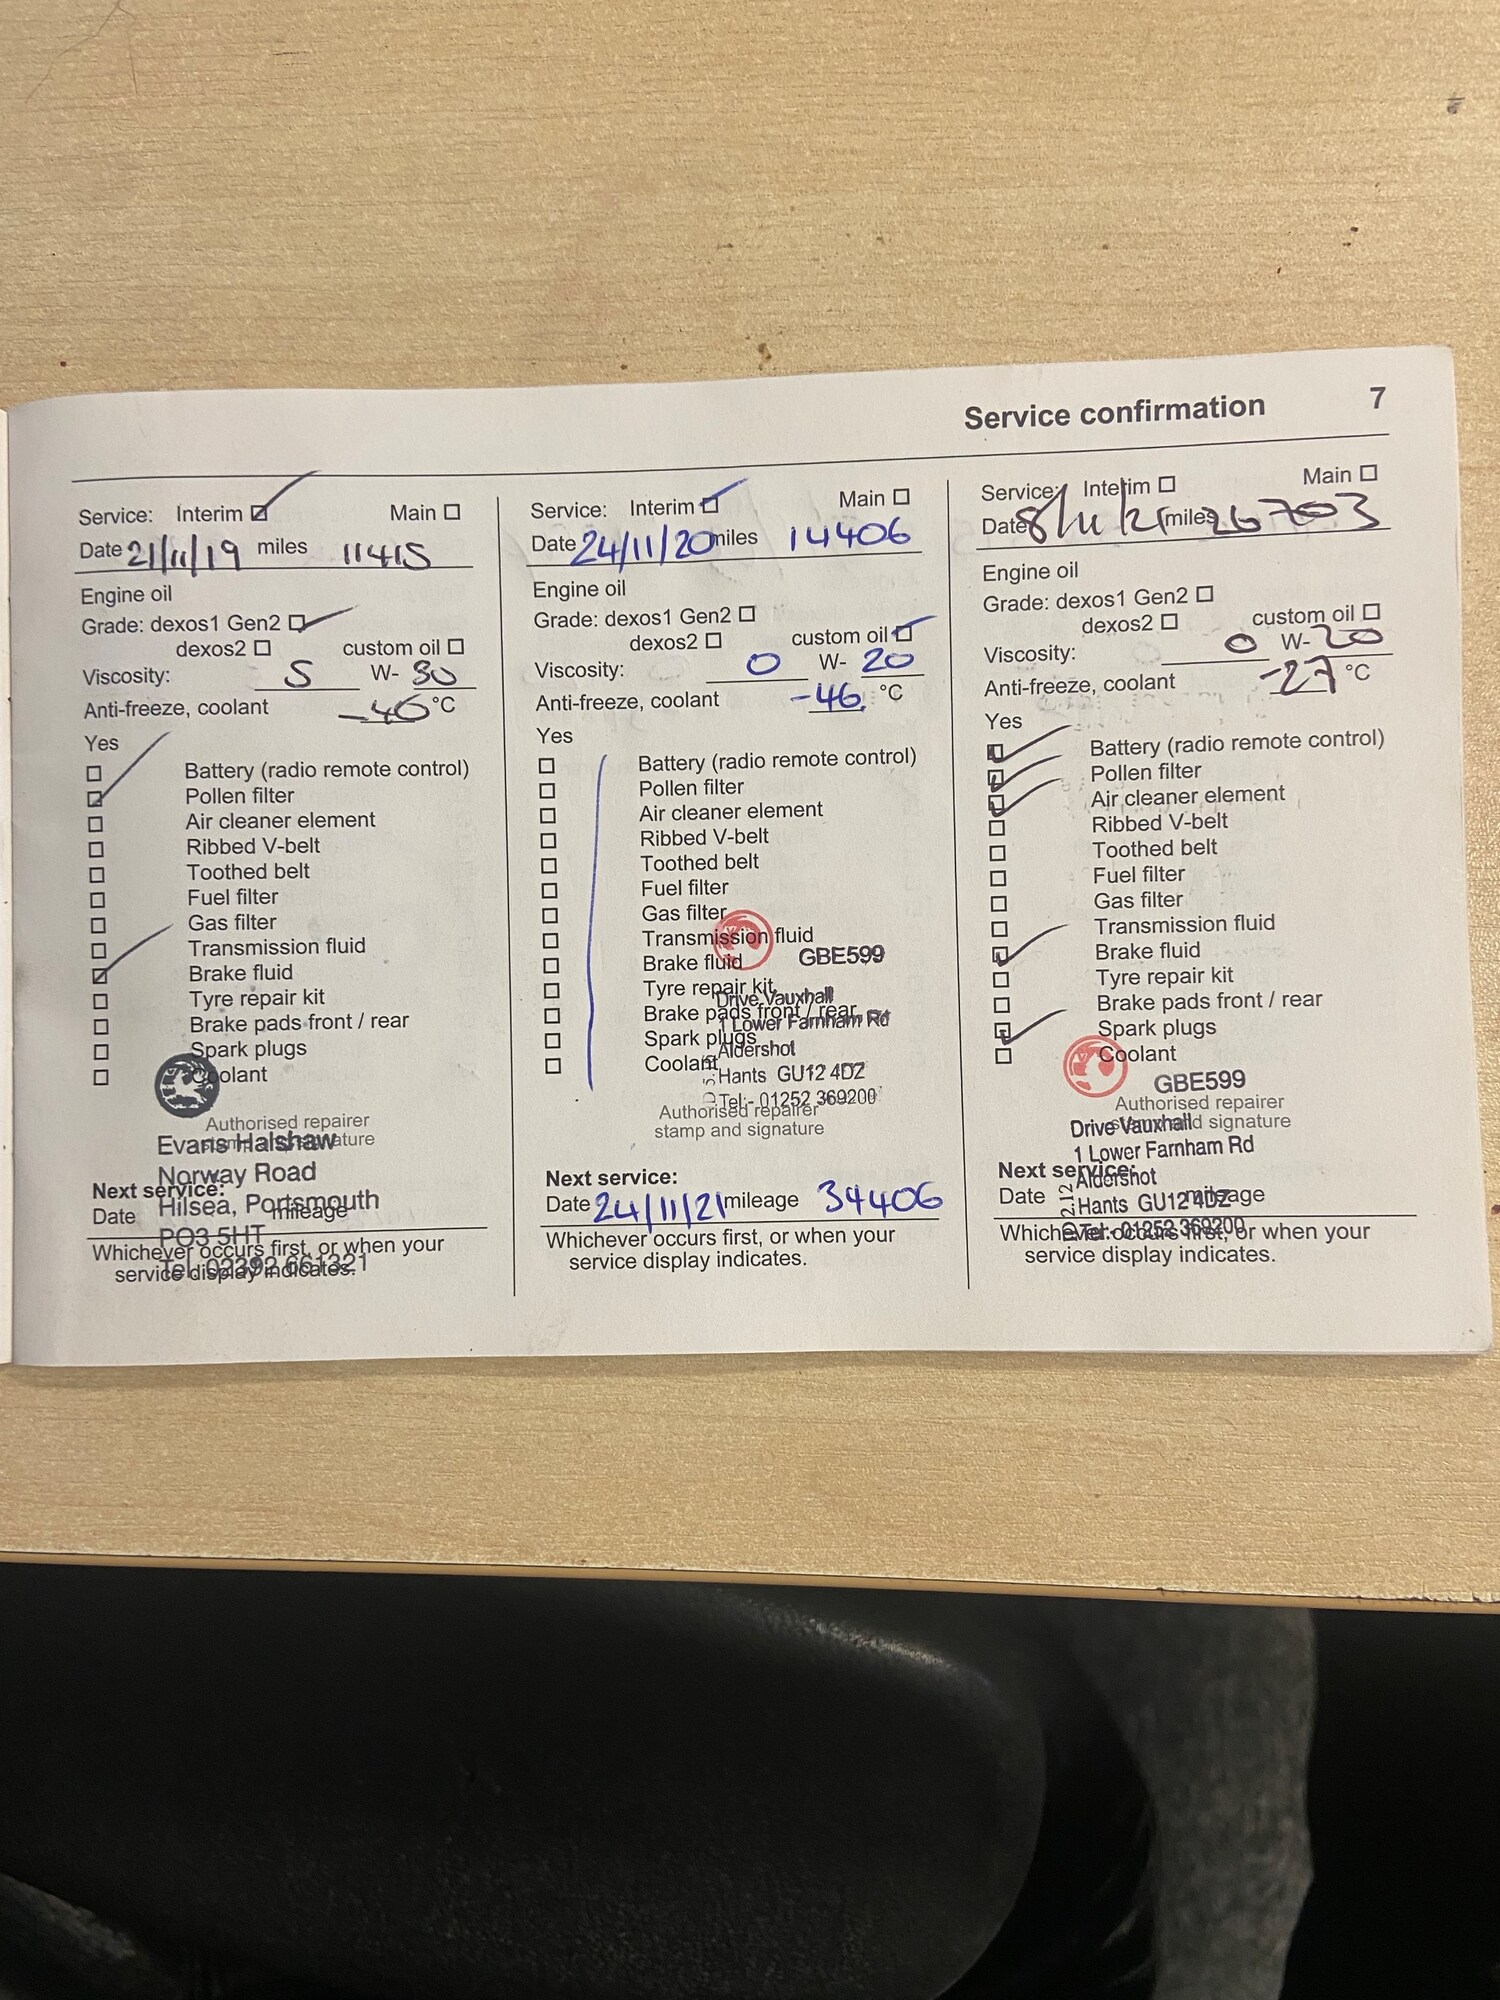 Service confirmation 7
Service: Interim Main
Date 21/11/19 miles 11415
Engine oil
Grade: dexos1 Gen2
dexos2 custom oil
Viscosity: 5 W- 30
Anti-freeze, coolant -46 °C
Yes
Battery (radio remote control)
Pollen filter
Air cleaner element
Ribbed V-belt
Toothed belt
Fuel filter
Gas filter
Transmission fluid
Brake fluid
Tyre repair kit
Brake pads front / rear
Spark plugs
Coolant
Authorised repairer
stamp and signature
Evans Halshaw
Norway Road
Hilsea, Portsmouth
PO3 5HT
Tel: 02392 661321
Next service:
Date mileage
Whichever occurs first, or when your
service display indicates.
Service: Interim Main
Date 24/11/20 miles 14406
Engine oil
Grade: dexos1 Gen2
dexos2 custom oil
Viscosity: 0 W- 20
Anti-freeze, coolant -46 °C
Yes
Battery (radio remote control)
Pollen filter
Air cleaner element
Ribbed V-belt
Toothed belt
Fuel filter
Gas filter
Transmission fluid
Brake fluid
Tyre repair kit
Brake pads front / rear
Spark plugs
Coolant
GBE599
Drive Vauxhall
1 Lower Farnham Rd
Aldershot
Hants GU12 4DZ
Tel:- 01252 369200
Authorised repairer
stamp and signature
Next service:
Date 24/11/21 mileage 34406
Whichever occurs first, or when your
service display indicates.
Service: Interim Main
Date 8/11/21 miles 26703
Engine oil
Grade: dexos1 Gen2
dexos2 custom oil
Viscosity: 0 W- 20
Anti-freeze, coolant -27 °C
Yes
Battery (radio remote control)
Pollen filter
Air cleaner element
Ribbed V-belt
Toothed belt
Fuel filter
Gas filter
Transmission fluid
Brake fluid
Tyre repair kit
Brake pads front / rear
Spark plugs
Coolant
GBE599
Authorised repairer
stamp and signature
Drive Vauxhall
1 Lower Farnham Rd
Aldershot
Hants GU12 4DZ
Tel:- 01252 369200
Next service:
Date mileage
Whichever occurs first, or when your
service display indicates.